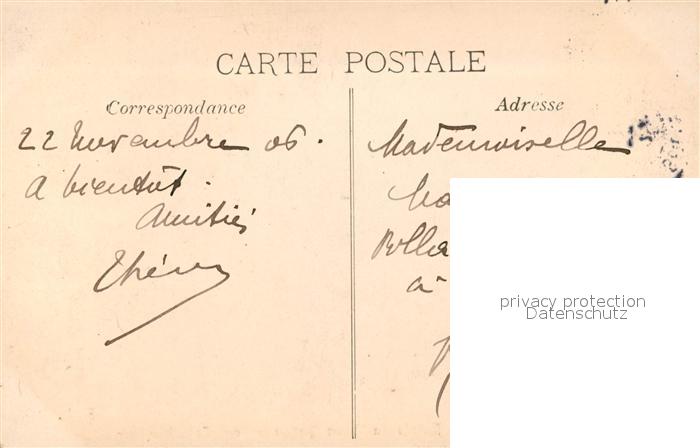 CARTE POSTALE
Correspondance
22 Novembre 06.
A bientôt.
Amitiés
Adresse
Mademoiselle
à
privacy protection
Datenschutz